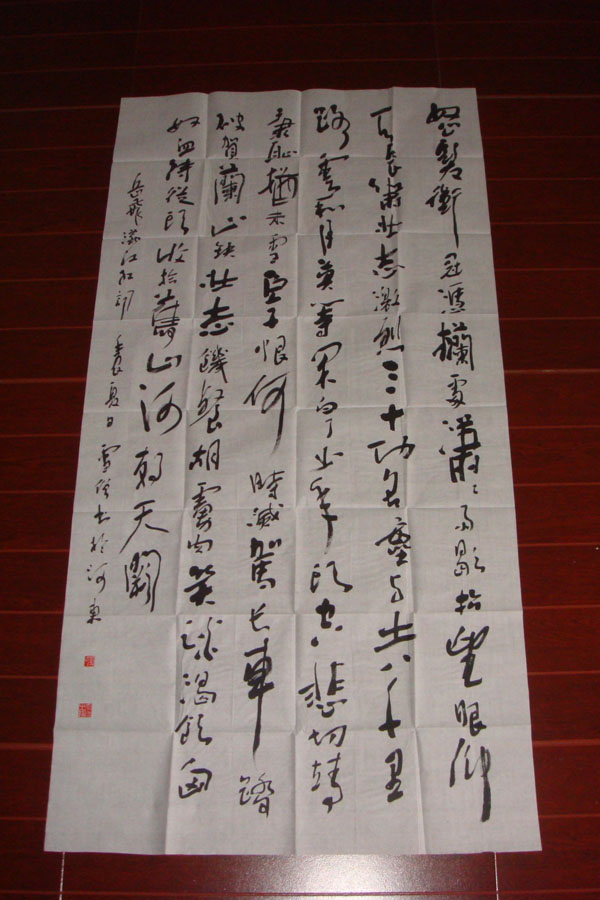 怒髮衝冠憑欄處瀟瀟雨歇抬望眼仰
天长嘯壯志激烈三十功名塵与土八千里
路雲和月莫等闲白了少年頭空悲切靖
康恥猶未雪臣子恨何時滅駕长車踏
破賀蘭山缺壯志饑餐胡虜肉笑談渴飲匈
奴血待從頭收拾舊山河朝天闕
岳飛滿江紅詞 壬辰夏日 雪书於河東